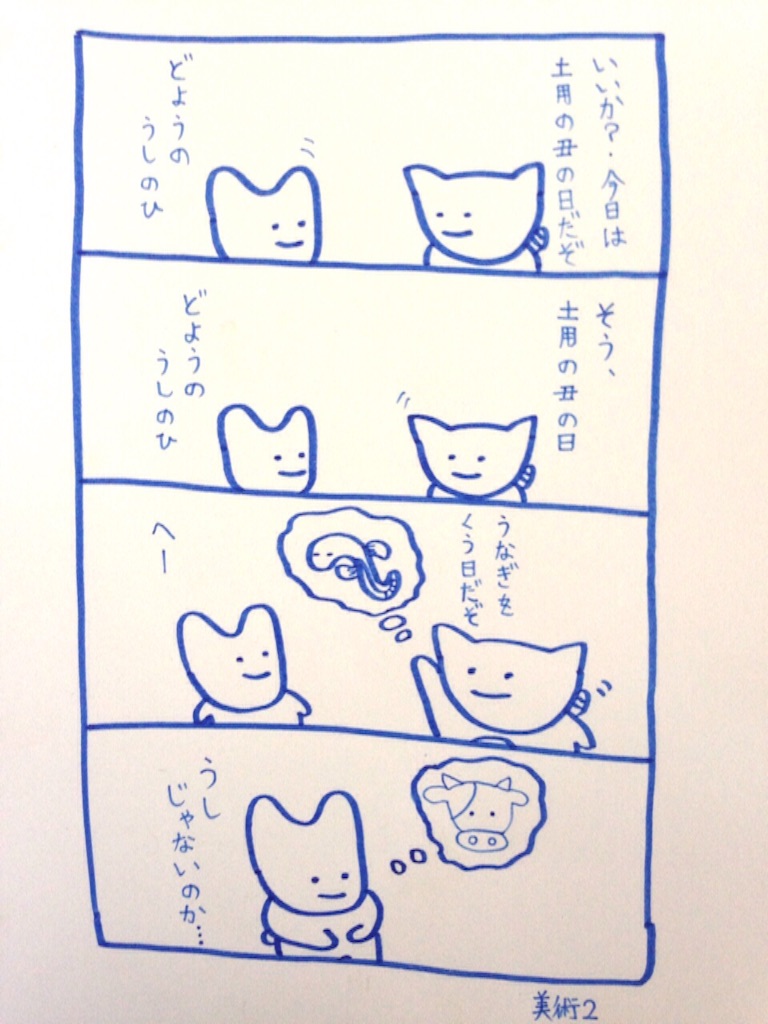 いいか?.今日は
土用の丑の日だぞ
どようの
うしのひ
そう、
土用の丑の日
どようの
うしのひ
うなぎを
くう日だぞ
へー
うし
じゃないのか…
美術2